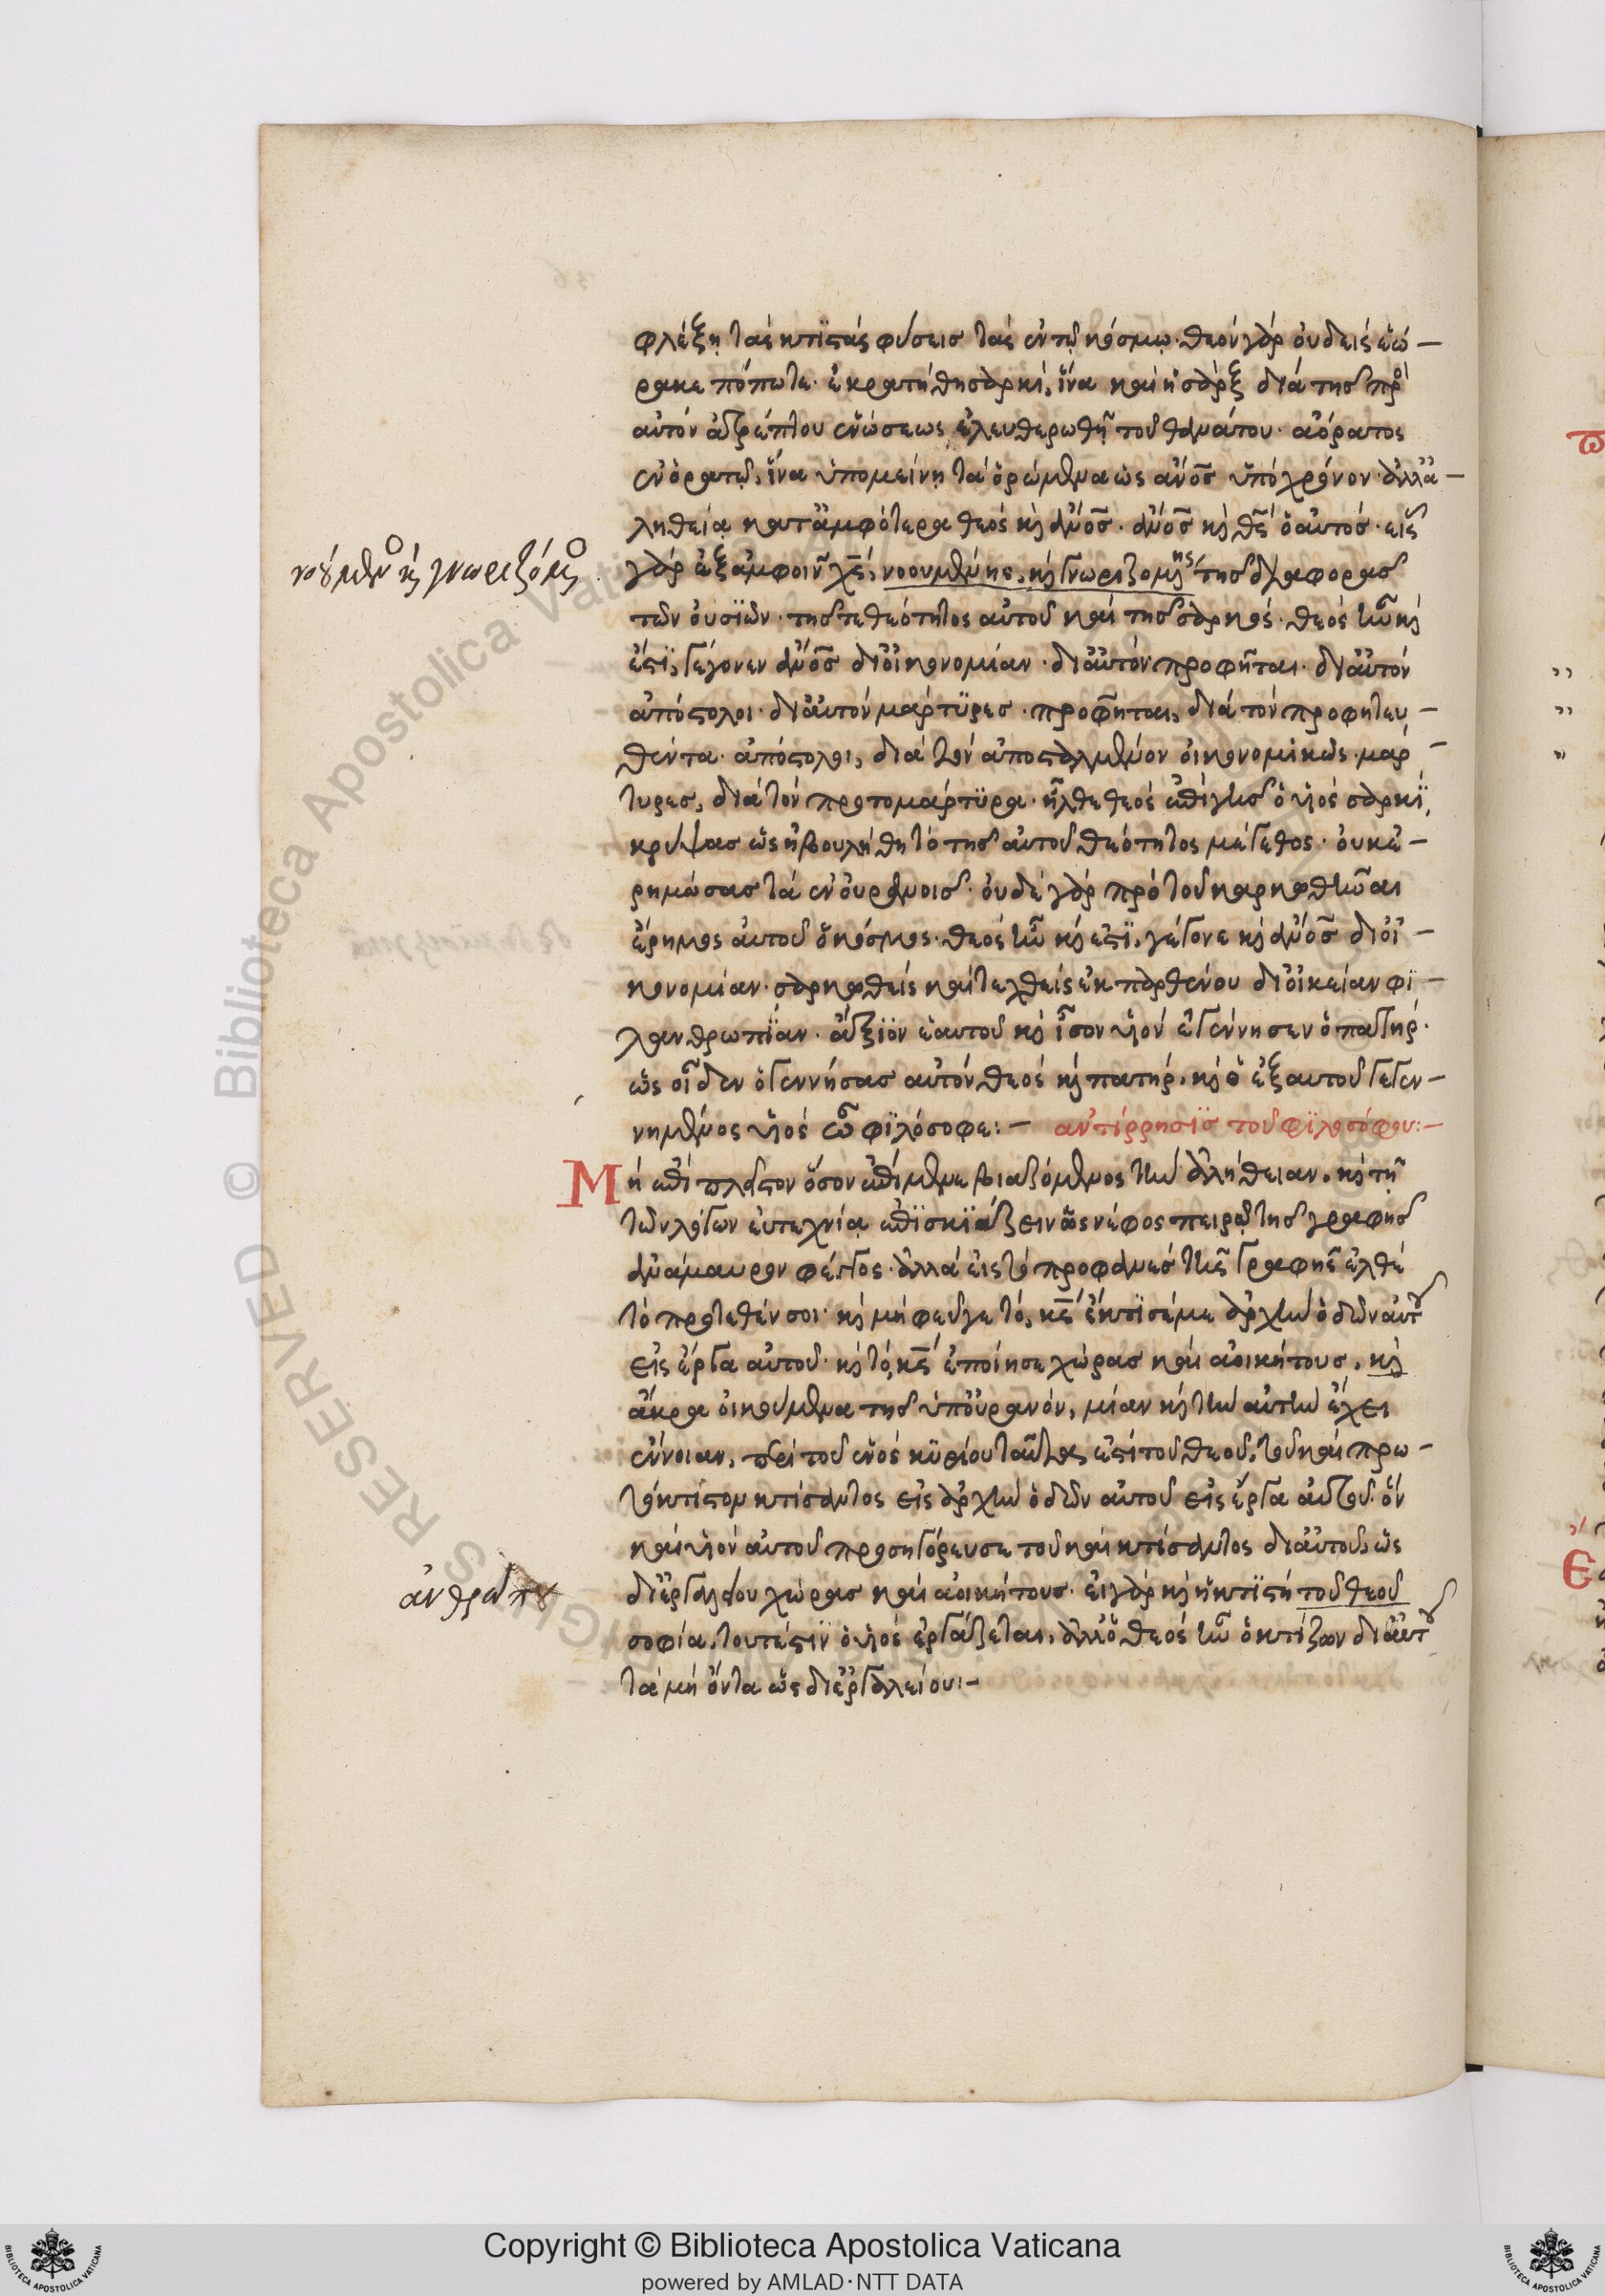 φλέξῃ τὰς κτϊστὰς φύσεισ τὰς ἐν τῷ κόσμῳ· θεὸν γὰρ οὐδεὶς ἑώ-
ρακε πόποτε· ἐκρατήθη σαρκὶ, ἵνα καὶ ἡ σὰρξ διὰ τῆσ πρὸ
αὐτὸν ἀτρέπτου ἑνώσεως ἐλευθερωθῇ τοῦ θανάτου· ἀόρατος
ἐν ὁρατῷ, ἵνα ὑπομείνῃ τὰ ὁρώμενα ὡς ἀνοσ ὑπὸ χρόνον· ἀλλ' ἀ-
ληθείᾳ κατ' ἀμφότερα θεὸς κ ανοσ· ανοσ κ θσ ὁ αὐτόσ· εἷσ
νοούμενο κ γνωριζόμενο
γὰρ ἐξ ἀμφοῖν χσ, νοουμένης, κ γνωριζομένης τῆσ διαφορασ
τῶν οὐσϊῶν· τῆσ τε θεότητος αὐτοῦ καὶ τῆσ σαρκός· θεὸς ὢν κ
ἐστϊ, γέγονεν ανοσ δι' οἰκονομίαν· δι' αὐτὸν προφῆται· δι' αὐτὸν
ἀπόστολοι· δι' αὐτὸν μάρτϋρεσ· προφῆται, διὰ τὸν προφητευ-
θέντα· ἀπόστολοι, διὰ τὸν ἀποσταλμένον οἰκονομικῶς· μάρ-
τυρεσ, διὰ τὸν πρωτομάρτϋρα· ἦλθε θεὸς ἐπὶ γῆσ ὁ υἱὸς σαρκϊ,
κρύψασ ὡς ἠβουλήθη τὸ τῆσ αὐτοῦ θεότητος μέγεθος· οὐκ ἐ-
ρημώσας τὰ ἐν οὐρανοισ· οὐδὲ γὰρ πρὸ τοῦ σαρκωθῆναι
ἔρημος αὐτοῦ ὁ κόσμος· θεὸς ὢν κ ἐστϊ, γέγονε κ ανοσ δι' οἰ-
κονομίαν· σαρκωθεὶς καὶ τεχθεὶς ἐκ παρθένου δι' οἰκείαν φϊ-
λανθρωπϊαν· ἄξϊον ἑαυτοῦ κ ἶσον υἱὸν ἐγέννησεν ὁ πατήρ·
ὡς οἶδεν ὁ γεννήσασ αὐτὸν θεὸς κ πατήρ, κ ὁ ἐξ αὐτοῦ γεγεν-
νημένος υἱὸς ὦ φϊλόσοφε:- ἀντίρρησϊσ τοῦ φϊλοσόφου:-
Μὴ ἐπὶ πλεῖστον ὅσον ἐπίμενε βιαζόμενος τὴν ἀλήθειαν, κ τῇ
τῶν λόγων εὐτεχνίᾳ ἐπϊσκϊάζειν ὡς νέφος πειρῶ τῆσ γραφῆσ
ἀναμαυρον φέγγος· ἀλλὰ εἰς τὸ προφανὲσ τῆς γραφῆς ἐλθὲ
τὸ προτεθέν σοι· κ μὴ φεῦγε τὸ, κσ ἔκτϊσέ με ἀρχὴν ὁδῶν αὐτοῦ
εἰς ἔργα αὐτοῦ· κ τὸ, κσ ἐποίησε χώρασ καὶ ἀοικήτους, κ
ἄκρα οἰκούμενα τῆσ ὑπ' οὐρανὸν, μίαν κ τὴν αὐτὴν ἔχει
ἔννοιαν, περὶ τοῦ ἑνὸς κϋρίου ταῦτα ἐστὶ τοῦ θεοῦ, τοῦ καὶ πρω-
τόκτιστον κτίσαντος εἰς ἀρχὴν ὁδῶν αὐτοῦ εἰς ἔργα αὐτοῦ· ὃν
καὶ υἱὸν αὐτοῦ προσηγόρευσε τοῦ καὶ κτίσαντος δι' αὐτοῦ, ὡς
ἀνθρώπου
δι' ἐργαλείου χώρασ καὶ ἀοικήτους· εἰ γὰρ κ ἡ κτϊστὴ τοῦ θεοῦ
σοφία, τουτέστϊν ὁ υἱὸς ἐργάζεται, ἀλλ' ὁ θεὸς ἦν ὁ κτίζων δι' αὐτοῦ
τὰ μὴ ὄντα ὡς δι' ἐργαλείου:-
Copyright © Biblioteca Apostolica Vaticana
powered by AMLAD·NTT DATA